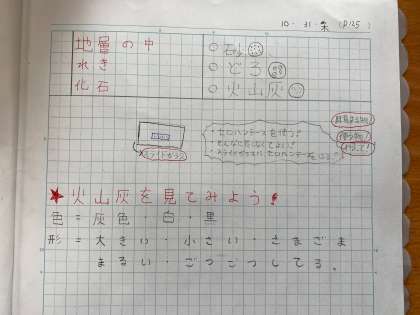 10.31.木 (P125)
地層の中
○砂
れき
○どろ
化石
○火山灰
スライドガラス
・セロハンテープを使う!
★火山灰を見てみよう!
色=灰色・白・黒
形=大きい・小さい・さまざま
まるい・ごつごつしてる。